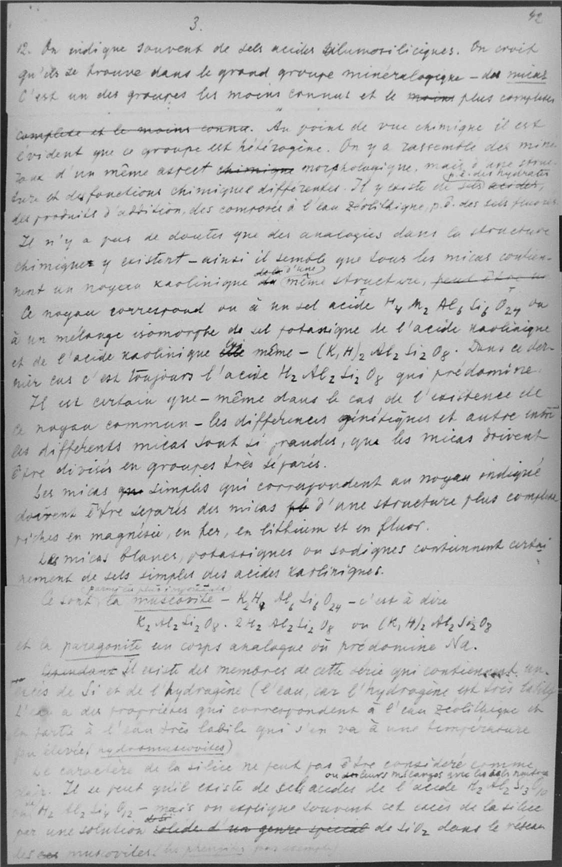 3.
42
12. On indique souvent de sels acides alumosiliciques. On croit
qu'ils se trouve dans le grand groupe minéralogique – des micas
C'est un des groupes les moins connus et le moins plus complexes
complexe et le moins connu. Au point de vue chimique il est
évident que ce groupe est hétérogène. On y a rassemblé des miné
raux d'un même aspect chimique morphologique, mais d'avec struc-
ture et des fonctions chimiques différentes. Il y existe de sels acides, p.d. des hydrates
des produits d'addition, des composés à l'eau zéolithique, p.d. des sels
Il n'y a pas de doutes que des analogies dans la structure
chimique y existent – ainsi il semble que tous les micas contien-
nent un noyau kaolinique de la d'une même structure,
Ce noyau correspond ou à un sel acide H4 M2 Al6 Si6 O24 ou
à un mélange isomorphe de sel potassique de l'acide kaolinique
et de l'acide kaolinique même – (K,H)2 Al2 Si2 O8. Dans ce der-
nier cas c'est toujours l'acide H2 Al2 Si2 O8 qui prédomine.
Il est certain que – même dans le cas de l'existence de
ce noyau commun – les différences génétiques et autre entre
les différents micas sont si grandes, que les micas doivent
être divisés en groupes très séparés.
Les micas simples qui correspondent au noyau indiqué
doivent être séparés des micas d'une structure plus complexe
riches en magnésie, en fer, en lithium et en fluor.
Les micas blancs, potassiques ou sodiques contiennent certai
nement de sels simples des acides kaoliniques.
Ce sont, la muscovite – K2H4 Al6 Si6 O24 – c'est à dire
K2 Al2 Si2 O8 . 2H2 Al2 Si2 O8 ou (K,H)2 Al2 Si2 O8
et la paragonite un corps analogue où prédomine Na.
Cependant Il existe des membres de cette série qui contiennent un
excès de Si et de l'hydrogène (l'eau, car l'hydrogène est très labile
L'eau a des propriétés qui correspondent à l'eau zéolithique et
en partie à l'eau très labile qui s'en va à une température
peu élevée hydromuscovites)
Le caractère de la silice ne peut pas être considéré comme
clair. Il se peut qu'il existe de sels acides de l'acide H2 Al2 Si3 O10
ou H2 Al2 Si4 O12 – mais on explique souvent cet excès de la silice
par une solution solide d'un genre spécial de SiO2 dans le réseau
des muscovites.